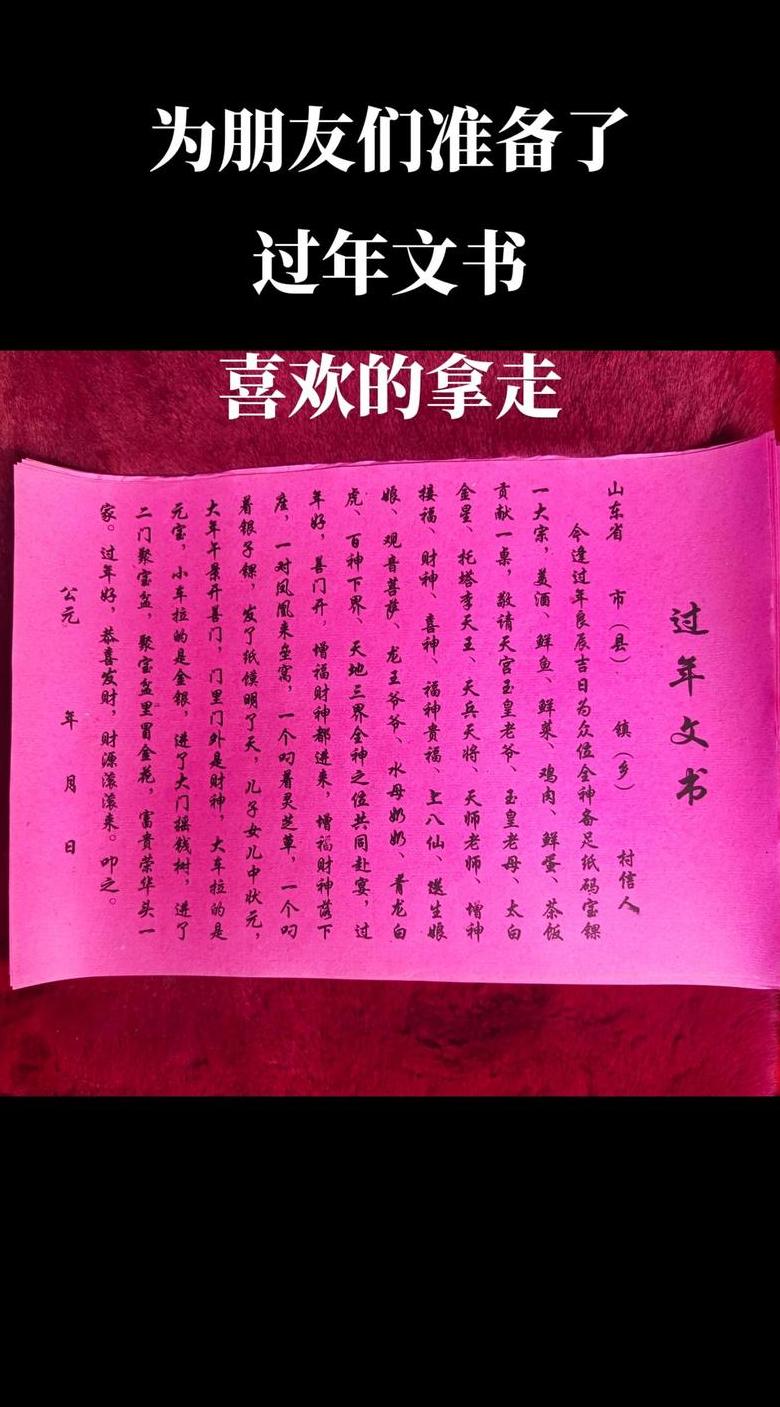 为朋友们准备了
过年文书
喜欢的拿走
过年文书
山东省 市（县） 镇（乡） 村信人
今逢过年良辰吉日为众位全神备足纸码宝锞
一大宗，美酒、鲜鱼、鲜菜、鸡肉、鲜蛋、茶饭
贡献一桌，敬请天宫玉皇老爷、玉皇老母、太白
金星、托塔李天王、天兵天将、天师老师、增神
接福、财神、喜神、福神贵福、上八仙、送生娘
娘、观音菩萨、龙王爷爷、水母奶奶、青龙白
虎、百神下界、天地三界全神之位共同赴宴，过
年好，喜门开，增福财神都进来，增福财神落下
座，一对凤凰来垒窝，一个叼着灵芝草，一个叼
着银子锞，发了纸㥃明了天，儿子女儿中状元，
大年午景开喜门，门里门外是财神，大车拉的是
元宝，小车拉的是金银，进了大门摇钱树，进了
二门聚宝盆，聚宝盆里冒金花，富贵荣华头一
家。过年好，恭喜发财，财源滚滚来。叩之。
公元 年 月 日